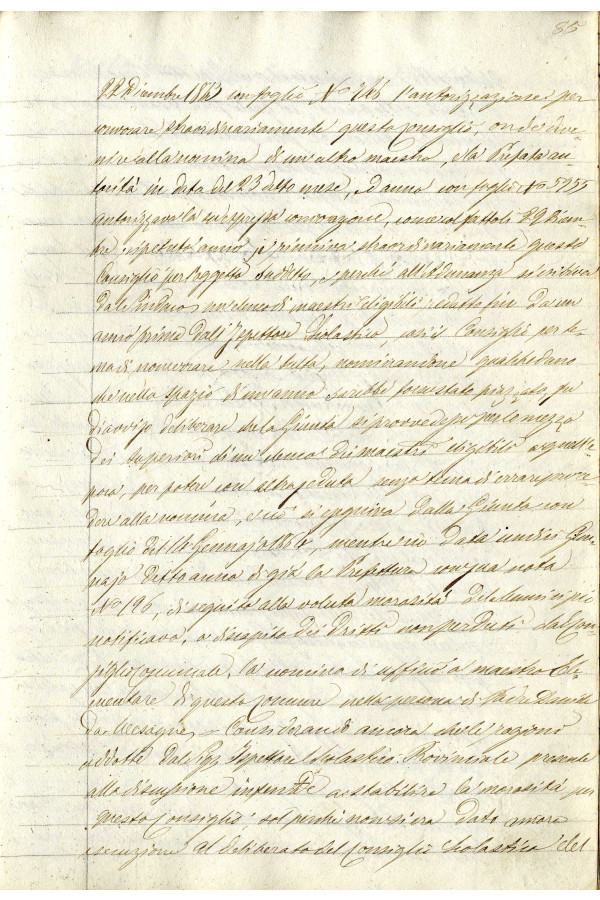 85
22 Dicembre 1863 con foglio N° l'autorizzazione per
convocare straordinariamente questo Consiglio, onde
alla nomina di un altro maestro, e la Prefata au
torità in data del 23 detto mese, ed anno con foglio N° 5955
autorizzava la convocazione,
anno, si riuniva straordinariamente questo
Consiglio per l'oggetto suddetto, e perché all'Adunanza si
dal Sindaco un elenco di maestri eligibili redatto fin da un
anno prima dall'Ispettore Scolastico, così il Consiglio per te
ma di non errare nella scelta, nominandone qualcheduno
che nello spazio di un anno sarebbe forse stato piazzato, fu
di avviso deliberare che la Giunta si provvedesse per lo mezzo
dei superiori di un elenco dei maestri eligibili a quell'e
poca, per poter con altra seduta senza tema di errare proce
dere alla nomina, e ciò si eseguiva dalla Giunta con
foglio del 14 Gennajo 1864, mentre in data undici Gen
najo detto anno di già la Prefettura con sua nota
N° 196, di seguito alla voluta morosità del Municipio
notificava, a discapito dei dritti non perduti dal Con
siglio Comunale, la nomina di ufficio a maestro Ele
mentare di questo Comune nella persona di Padre Davide
da Mesagne = Considerando ancora che le ragioni
addotte dal Sig. Ispettore Scolastico Provinciale presente
alla discussione a stabilire la morosità per
questo Consiglio sol perché non si era data
esecuzione al deliberato del Consiglio Scolastico del